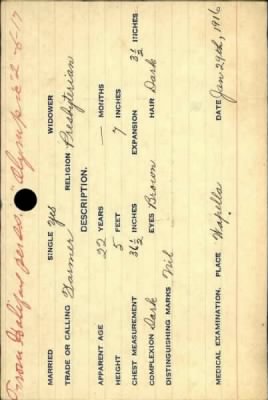 From Halifax per ss. "Olympic" 2-6-17
MARRIED SINGLE yes WIDOWER
TRADE OR CALLING Farmer RELIGION Presbyterian
DESCRIPTION.
APPARENT AGE 22 YEARS — MONTHS
HEIGHT 5 FEET 7 INCHES
CHEST MEASUREMENT 36½ INCHES EXPANSION 3½ INCHES
COMPLEXION Dark EYES Brown HAIR Dark
DISTINGUISHING MARKS Nil
MEDICAL EXAMINATION. PLACE Wapella DATE Jan 29th, 1916